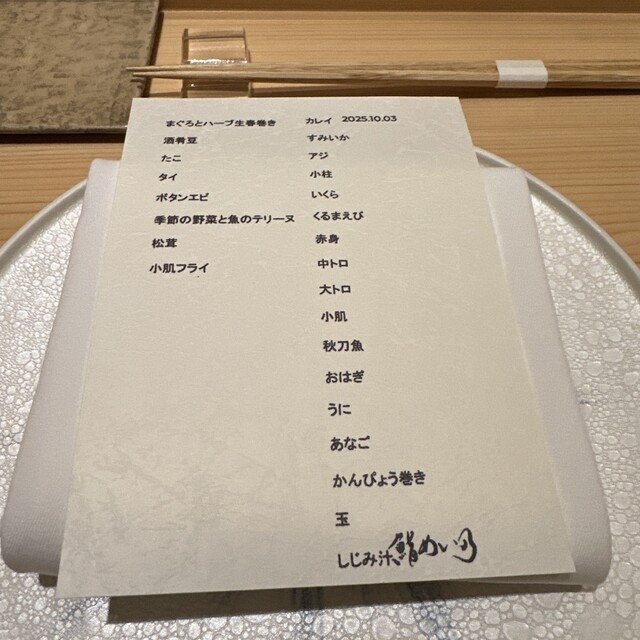 まぐろとハーブ生春巻き
酒肴豆
たこ
タイ
ボタンエビ
季節の野菜と魚のテリーヌ
松茸
小肌フライ
カレイ 2025.10.03
すみいか
アジ
小柱
いくら
くるまえび
赤身
中トロ
大トロ
小肌
秋刀魚
おはぎ
うに
あなご
かんぴょう巻き
玉
しじみ汁
鮨めい乃